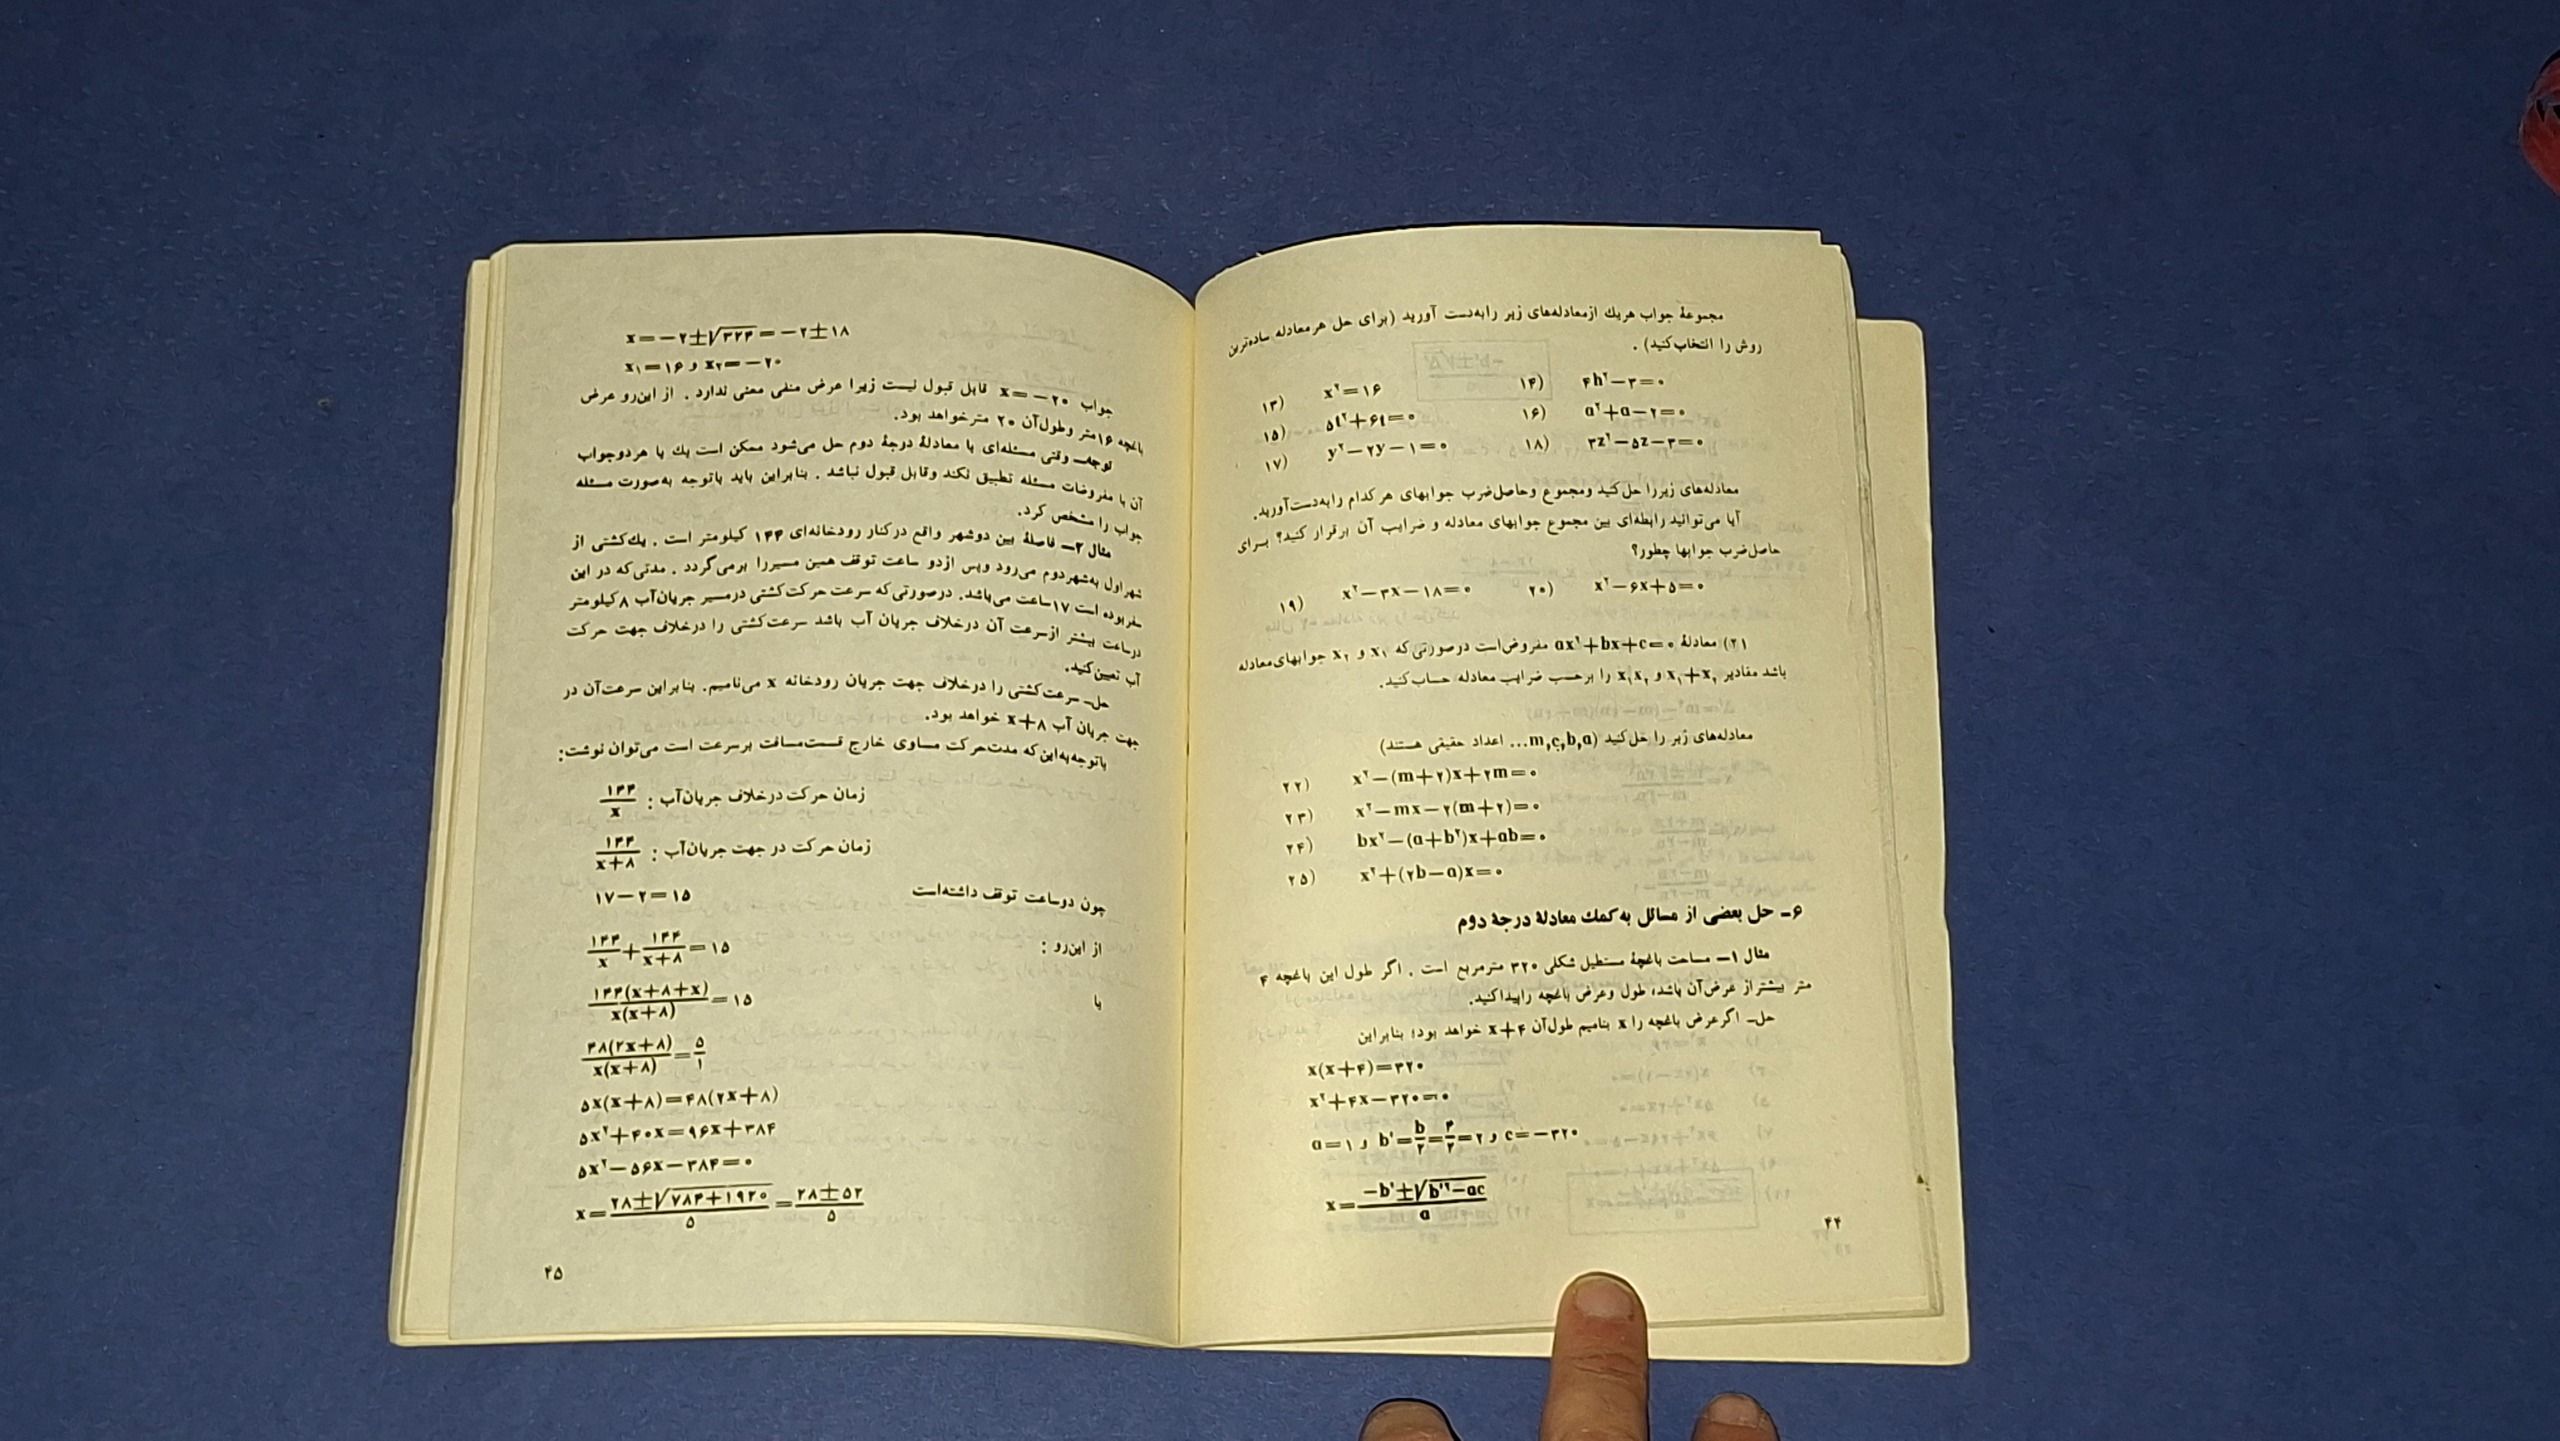 مجموعهٔ جواب هریك ازمعادله‌های زیر رابه‌دست آورید (برای حل هرمعادله ساده‌ترین
روش را انتخاب‌کنید) .
۱۳) x²=۱۶ ۱۴) ۴h²−۳=۰
۱۵) ۵t²+۶t=۰ ۱۶) a²+a−۲=۰
۱۷) y²−۲y−۱=۰ ۱۸) ۳z²−۵z−۳=۰
معادله‌های زیررا حل‌کنید ومجموع وحاصل‌ضرب جوابهای هرکدام رابه‌دست‌آورید.
آیا می‌توانید رابطه‌ای بین مجموع جوابهای معادله و ضرایب آن برقرار کنید؟ بـرای
حاصل‌ضرب جوابها چطور؟
۱۹) x²−۳x−۱۸=۰ ۲۰) x²−۶x+۵=۰
۲۱) معادلهٔ ax²+bx+c=۰ مفروض‌است درصورتی‌که x₁ و x₂ جوابهای‌معادله
باشد مقادیر x₁+x₂ و x₁x₂ را برحسب ضرایب معادله حساب‌کنید.
معادله‌های زیر را حل‌کنید (m,c,b,a... اعداد حقیقی هستند)
۲۲) x²−(m+۲)x+۲m=۰
۲۳) x²−mx−۲(m+۲)=۰
۲۴) bx²−(a+b²)x+ab=۰
۲۵) x²+(۲b−a)x=۰
۶ــ حل بعضی از مسائل به‌کمك معادلهٔ درجهٔ دوم
مثال ۱ــ مساحت باغچهٔ مستطیل شکلی ۳۲۰ مترمربع است . اگر طول این باغچه ۴
متر بیشتراز عرض‌آن باشد، طول وعرض باغچه راپیداکنید.
حل‌ــ اگرعرض باغچه را x بنامیم طول‌آن x+۴ خواهد بود؛ بنابراین
x(x+۴)=۳۲۰
x²+۴x−۳۲۰=۰
a=۱ و b'=b/۲=۴/۲=۲ و c=−۳۲۰
x=(−b'±√(b'²−ac))/a
۴۴
x=−۲±√۳۲۴=−۲±۱۸
x₁=۱۶ و x₂=−۲۰
جواب x=−۲۰ قابل قبول نیست زیرا عرض منفی معنی ندارد . از این‌رو عرض
باغچه ۱۶متر وطول‌آن ۲۰ مترخواهد بود.
توجه‌ــ وقتی مسئله‌ای با معادلهٔ درجهٔ دوم حل می‌شود ممکن است یك یا هردوجواب
آن با مفروضات مسئله تطبیق نکند وقابل قبول نباشد . بنابراین باید باتوجه به‌صورت مسئله
جواب را مشخص کرد.
مثال ۲ــ فاصلهٔ بین دوشهر واقع درکنار رودخانه‌ای ۱۴۴ کیلومتر است . یك‌کشتی از
شهراول به‌شهردوم می‌رود وپس ازدو ساعت توقف همین مسیررا برمی‌گردد . مدتی‌که در این
سفربوده است ۱۷ساعت می‌باشد. درصورتی‌که سرعت حرکت‌کشتی درمسیر جریان‌آب ۸کیلومتر
درساعت بیشتر ازسرعت آن درخلاف جریان آب باشد سرعت‌کشتی را درخلاف جهت حرکت
آب تعیین‌کنید.
حل‌ــ سرعت‌کشتی را درخلاف جهت جریان رودخانه x می‌نامیم. بنابراین سرعت‌آن در
جهت جریان آب x+۸ خواهد بود.
باتوجه‌به‌این‌که مدت‌حرکت مساوی خارج قسمت‌مسافت برسرعت است می‌توان نوشت:
زمان حرکت درخلاف جریان‌آب : ۱۴۴/x
زمان حرکت در جهت جریان‌آب : ۱۴۴/(x+۸)
چون دوساعت توقف داشته‌است ۱۷−۲=۱۵
از این‌رو : ۱۴۴/x+۱۴۴/(x+۸)=۱۵
یا ۱۴۴(x+۸+x)/x(x+۸)=۱۵
۴۸(۲x+۸)/x(x+۸)=۵/۱
۵x(x+۸)=۴۸(۲x+۸)
۵x²+۴۰x=۹۶x+۳۸۴
۵x²−۵۶x−۳۸۴=۰
x=(۲۸±√(۷۸۴+۱۹۲۰))/۵=(۲۸±۵۲)/۵
۴۵